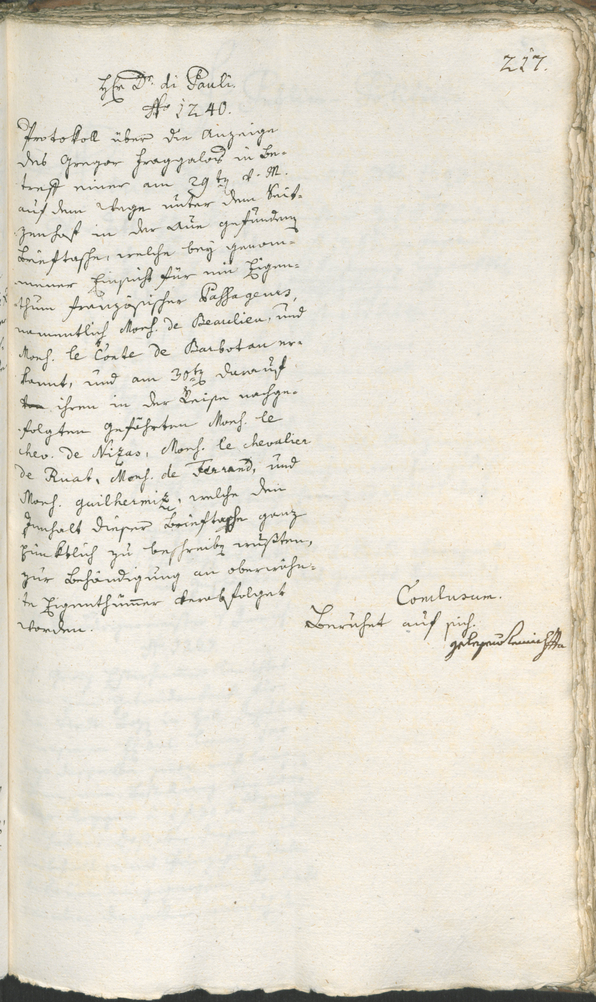 217.
Hr. Dr. di Pauli.
No 1240.
Protokoll über die Anzeige
des Gregor Fraggalos in Be-
treff einer am 29ten v. M.
auf dem Wege unter dem
in der Aue gefundenen
Brieftasche, welche bey genom-
mener Einsicht für ein Eigen-
thum französischer Passageurs,
nammentlich Mons. de Beaulieu, und
Mons. le Conte de Barbotan er-
kannt, und am 30ten darauf
ihren in der Reise nachge-
folgten Gefährten Mons. le
chev. de Nizas, Mons. le chevalier
de Ruat, Mons. de Ferrand, und
Mons. Guilhermiz, welche den
Innhalt dieser Brieftasche ganz
pünktlich zu beschreiben wußten,
zur Behändigung an oberwehn-
te Eigenthümmer verabfolget
worden.
Conclusum.
Beruhet auf sich.